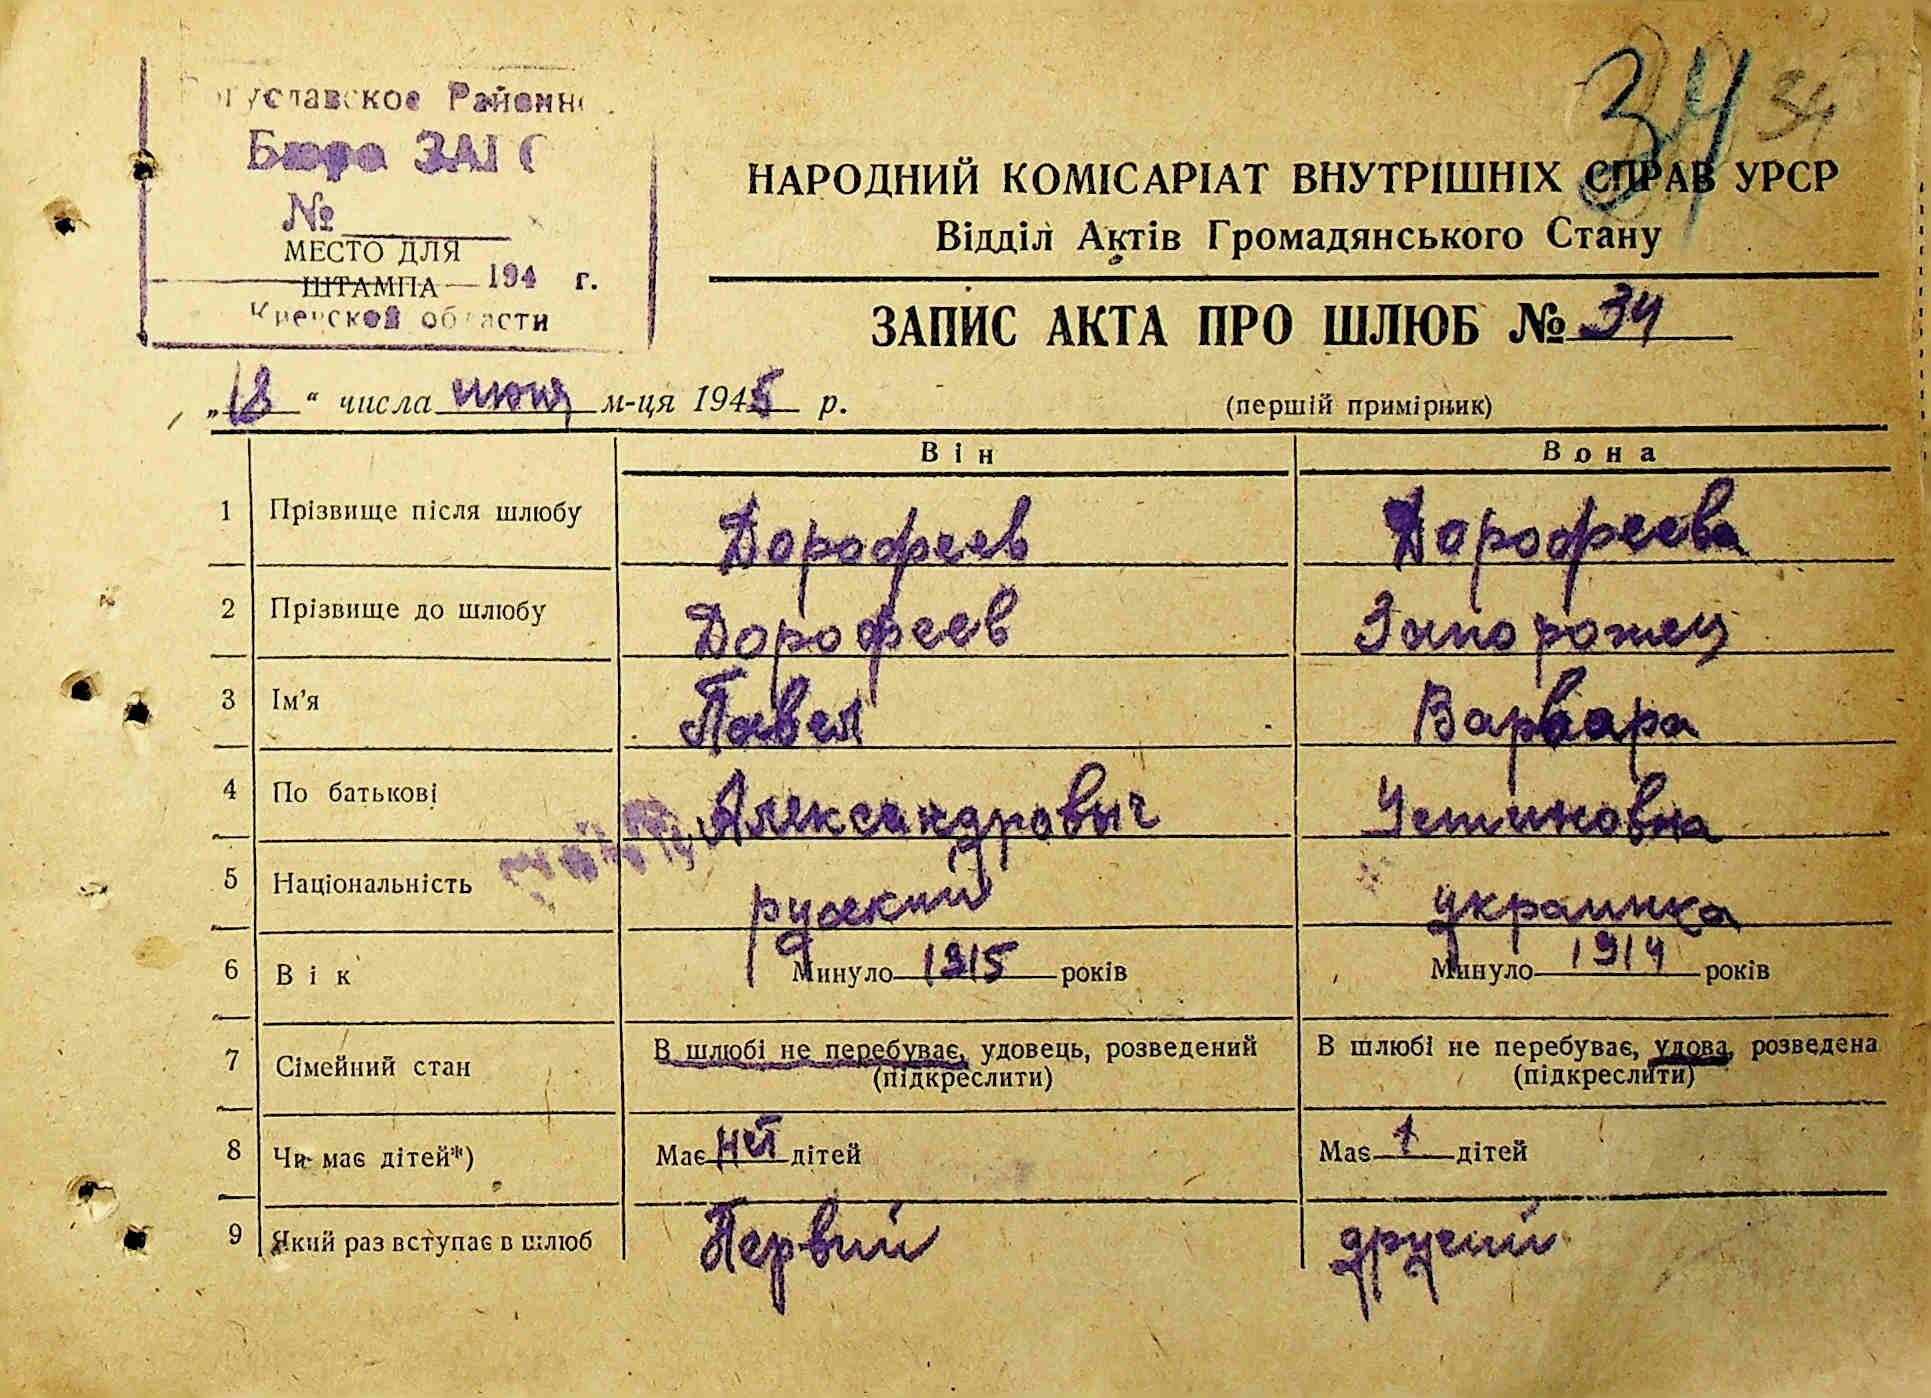 34 34
Богуславское Районн
Бюро ЗАГС
№
МЕСТО ДЛЯ
ШТАМПА 194 г.
Киевской области
НАРОДНИЙ КОМІСАРІАТ ВНУТРІШНІХ СПРАВ УРСР
Відділ Актів Громадянського Стану
ЗАПИС АКТА ПРО ШЛЮБ № 34
„18“ числа июня м-ця 1945 р. (першій примірник)
Він Вона
1 Прізвище після шлюбу Дорофеев Дорофеева
2 Прізвище до шлюбу Дорофеев Запорожец
3 Ім'я Павел Варвара
4 По батькові Александровыч Устиновна
5 Національність руский украинка
6 Вік Минуло 1915 років Минуло 1914 років
7 Сімейний стан В шлюбі не перебуває, удовець, розведений В шлюбі не перебуває, удова, розведена
(підкреслити) (підкреслити)
8 Чи має дітей*) Має нет дітей Має 1 дітей
9 Який раз вступає в шлюб Первий другий